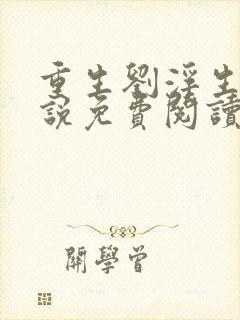 重生劉淫生
說免費閱讀
開學曾